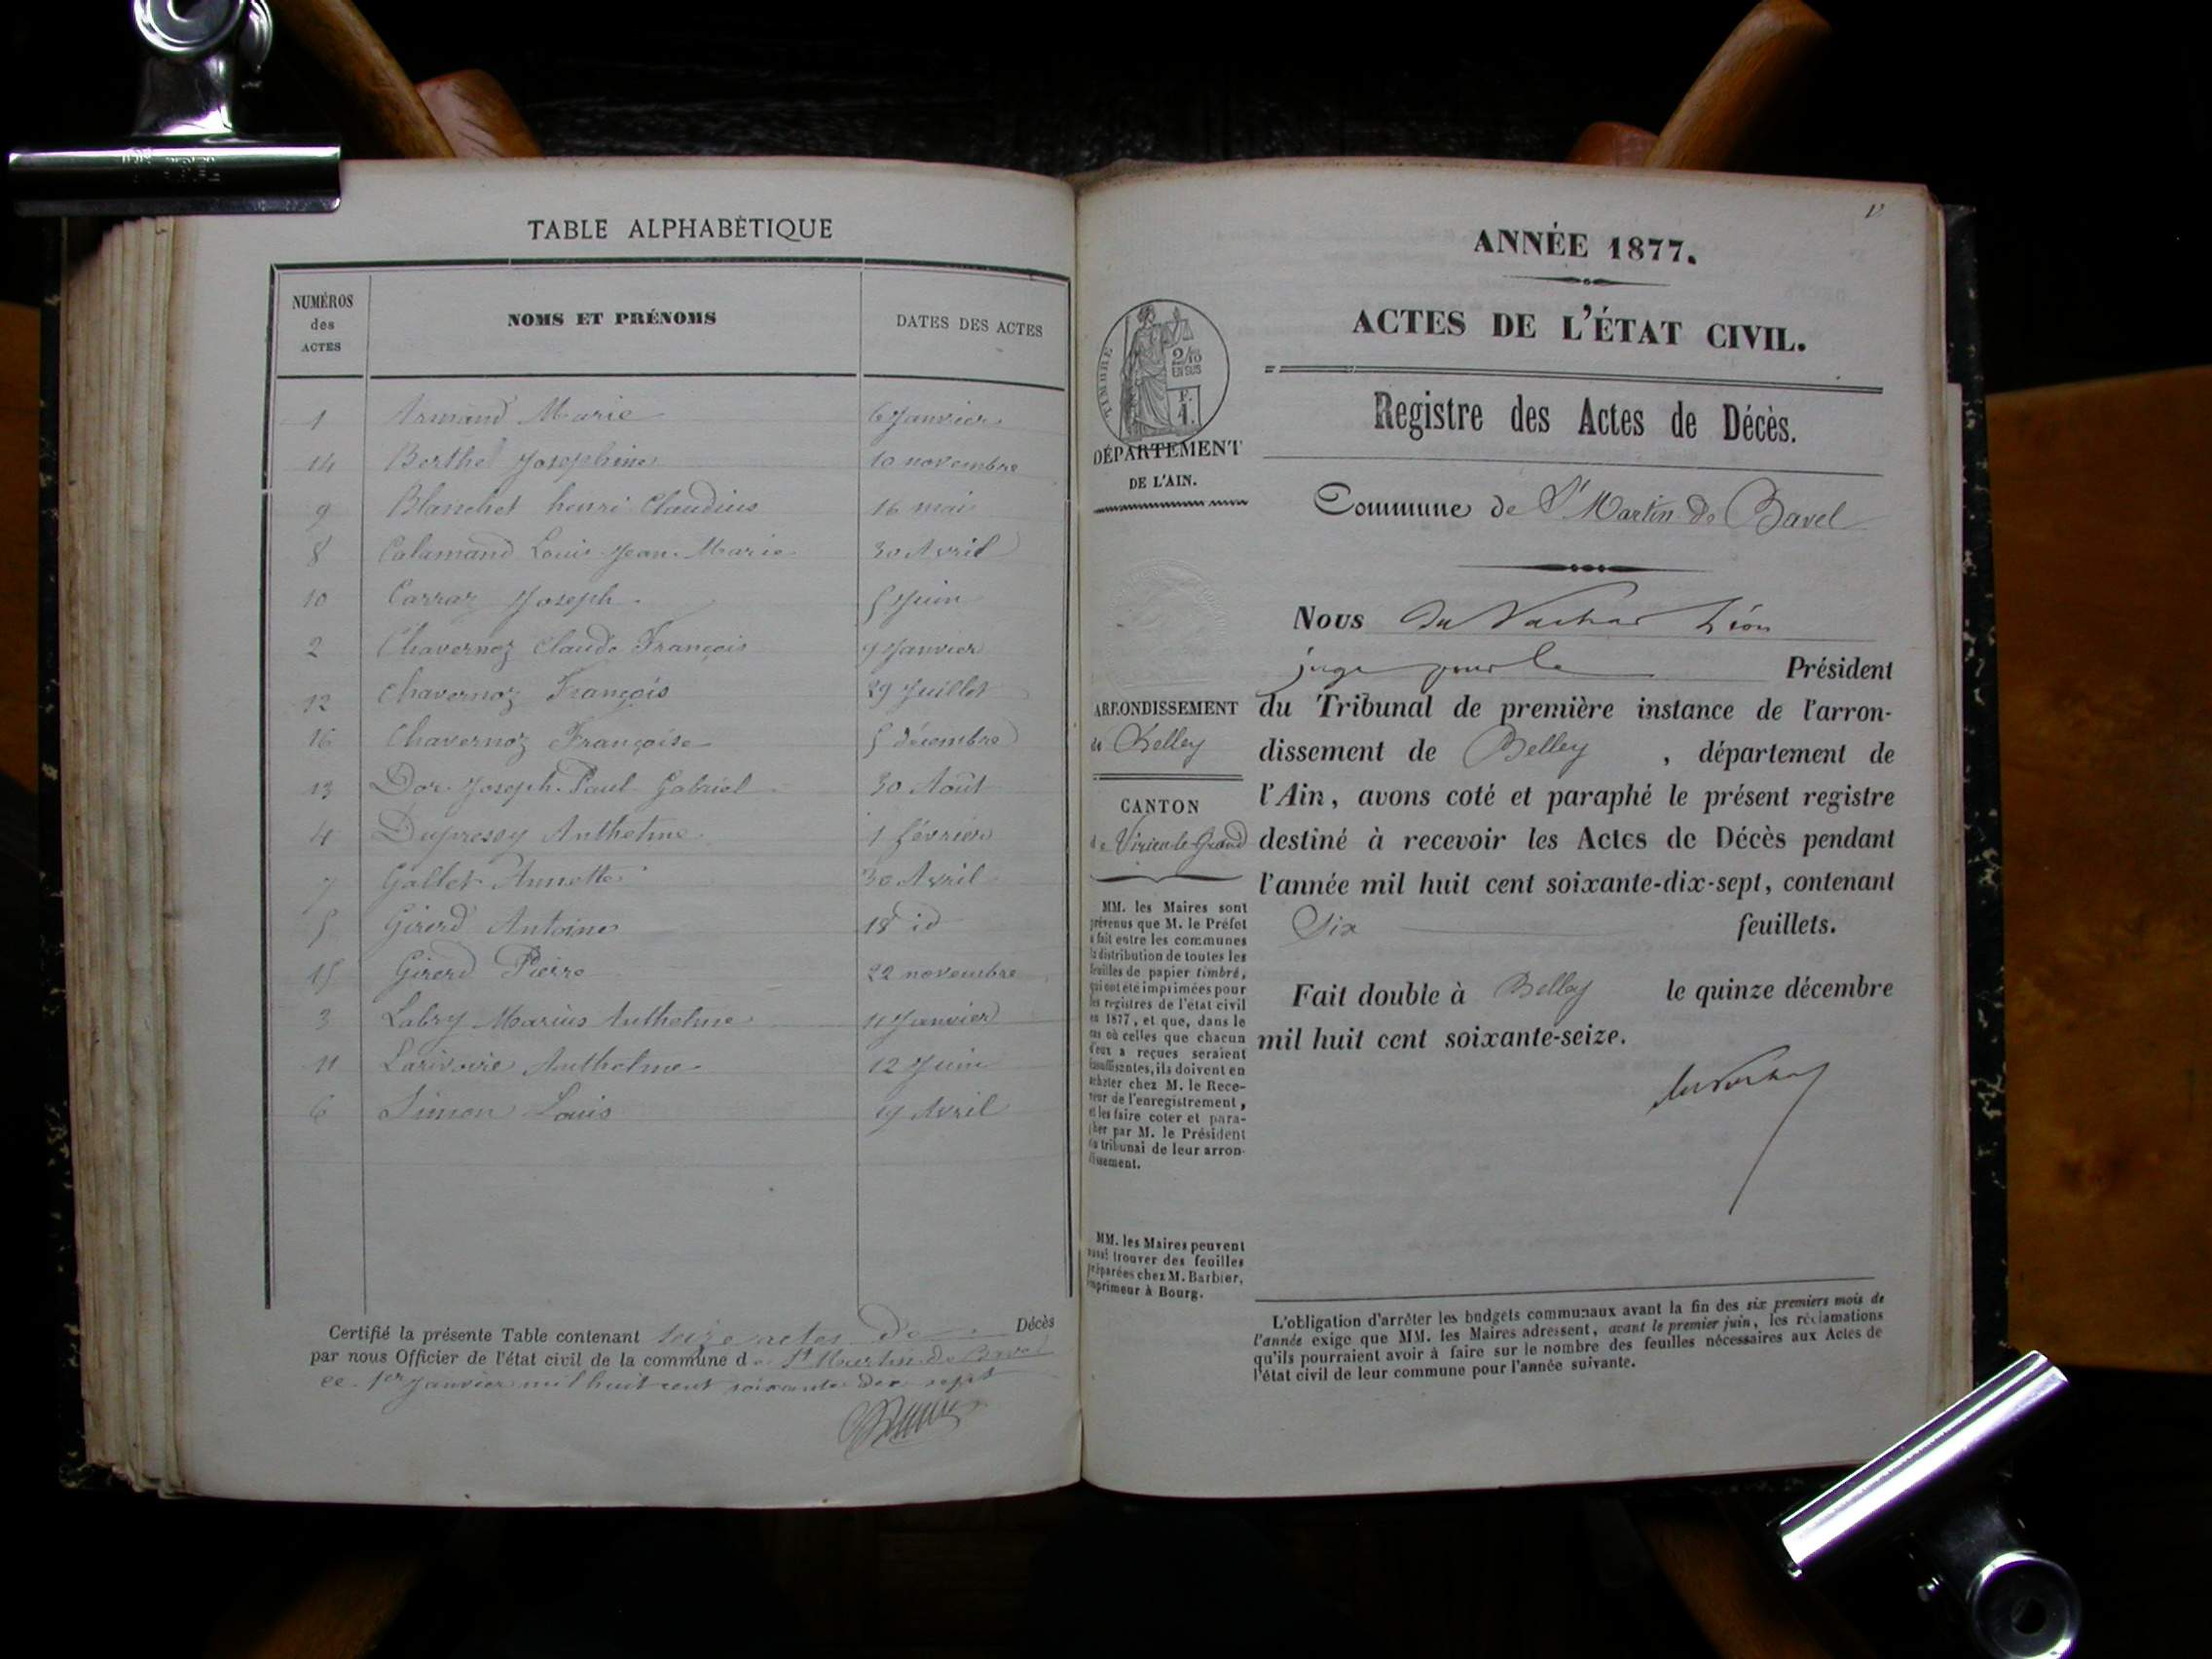 TABLE ALPHABÉTIQUE
NUMÉROS des ACTES | NOMS ET PRÉNOMS | DATES DES ACTES
1 Armand Marie 6 Janvier
14 Berthet Josephine 10 novembre
9 Blanchet henri Claudius 16 mai
8 Calamand Louis Jean-Marie 30 Avril
10 Carraz Joseph 5 Juin
2 Chavernoz Claude François 9 Janvier
12 Chavernoz François 29 Juillet
16 Chavernoz Françoise 5 décembre
13 Dor Joseph Paul Gabriel 30 Août
4 Dupressy Anthelme 1 février
7 Gallet Annette 30 Avril
5 Girerd Antoine 18 id
15 Girerd Pierre 22 novembre
3 Labry Marius Anthelme 11 Janvier
11 Larivoire Anthelme 12 Juin
6 Simon Louis 19 Avril
Certifié la présente Table contenant seize actes de Décès
par nous Officier de l'état civil de la commune de St Martin de Bavel
ce 1er Janvier mil huit cent soixante dix sept
ANNÉE 1877.
ACTES DE L'ÉTAT CIVIL.
Registre des Actes de Décès.
Commune de St Martin de Bavel
TIMBRE
2/10
EN SUS
F.
1.
DÉPARTEMENT
DE L'AIN.
ARRONDISSEMENT
de Belley
CANTON
de Virieu-le-Grand
MM. les Maires sont
prévenus que M. le Préfet
a fait entre les communes
la distribution de toutes les
feuilles de papier timbré,
qui ont été imprimées pour
les registres de l'état civil
en 1877, et que, dans le
cas où celles que chacun
d'eux a reçues seraient
insuffisantes, ils doivent en
acheter chez M. le Rece-
veur de l'enregistrement,
et les faire coter et para-
pher par M. le Président
du tribunal de leur arron-
dissement.
MM. les Maires peuvent
aussi trouver des feuilles
préparées chez M. Barbier,
imprimeur à Bourg.
Nous Léon
juge pour le Président
du Tribunal de première instance de l'arron-
dissement de Belley , département de
l'Ain, avons coté et paraphé le présent registre
destiné à recevoir les Actes de Décès pendant
l'année mil huit cent soixante-dix-sept, contenant
Six feuillets.
Fait double à Belley le quinze décembre
mil huit cent soixante-seize.
L'obligation d'arrêter les budgets communaux avant la fin des six premiers mois de
l'année exige que MM. les Maires adressent, avant le premier juin, les réclamations
qu'ils pourraient avoir à faire sur le nombre des feuilles nécessaires aux Actes de
l'état civil de leur commune pour l'année suivante.